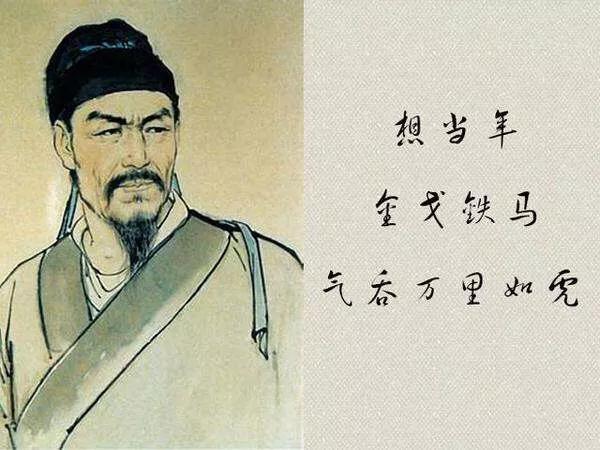 想当年
金戈铁马
气吞万里如虎